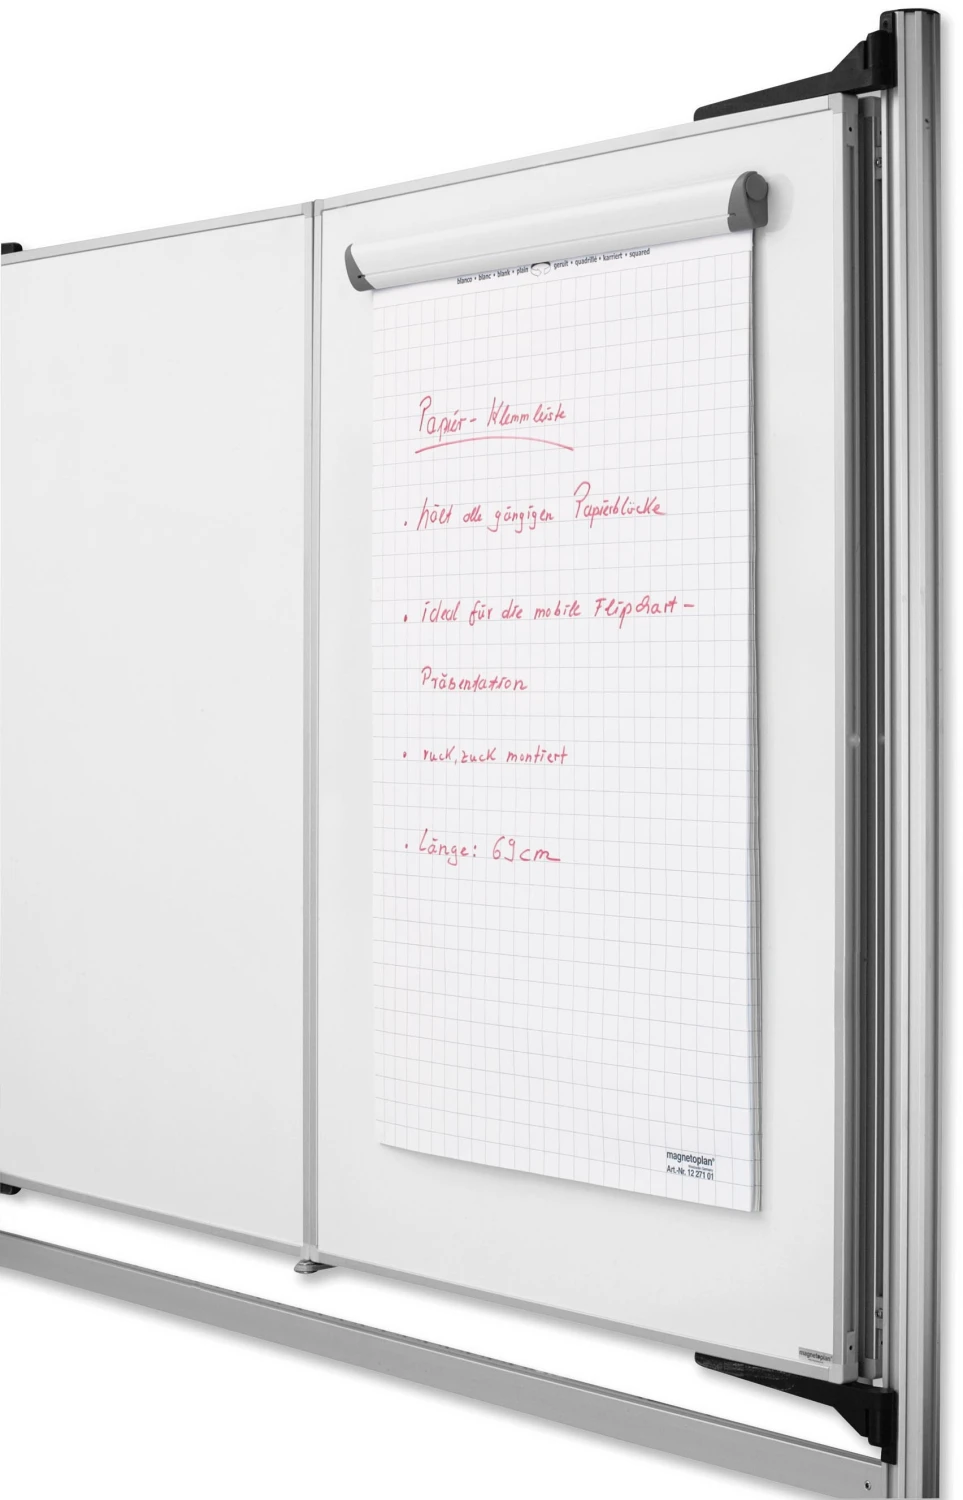 blanco • blanc • blank • plain geruit • quadrillé • kariert • squared
Papier- Klemmleiste
• hält alle gängigen Papierblöcke
• ideal für die mobile Flipchart-
Präsentation
• ruck, zuck montiert
• Länge: 69cm
magnetoplan®
Art.-Nr. 12 271 01
magnetoplan®